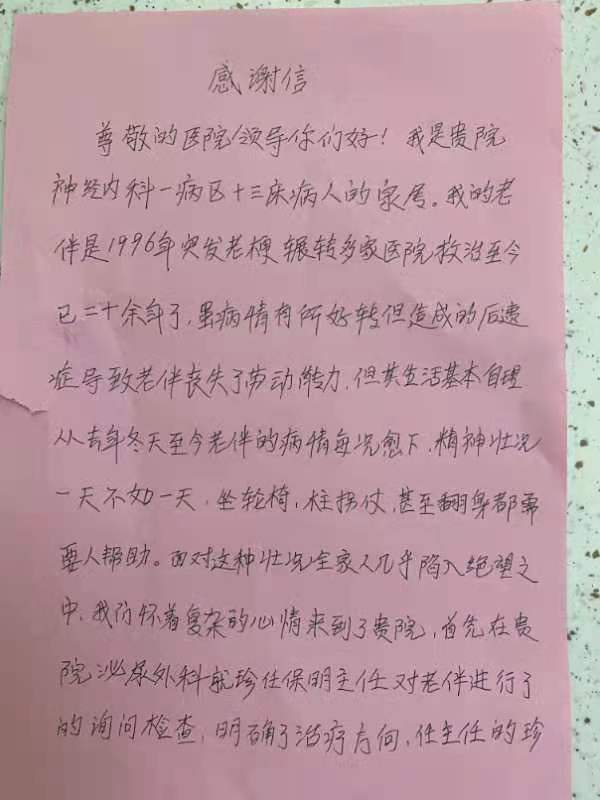 感谢信
尊敬的医院领导你们好！我是贵院
神经内科一病区十三床病人的家属。我的老
伴是1996年突发老梗辗转多家医院救治至今
已二十余年了，虽病情有所好转但造成的后遗
症导致老伴丧失了劳动能力，但其生活基本自理
从去年冬天至今老伴的病情每况愈下，精神壮况
一天不如一天，坐轮椅，柱拐仗，甚至翻身都需
要人帮助。面对这种壮况全家人几乎陷入绝望之
中，我们怀着复杂的心情来到了贵院，首先在贵
院泌尿外科就珍任保明主任对老伴进行了
的询问检查，明确了治疗方向，任主任的珍